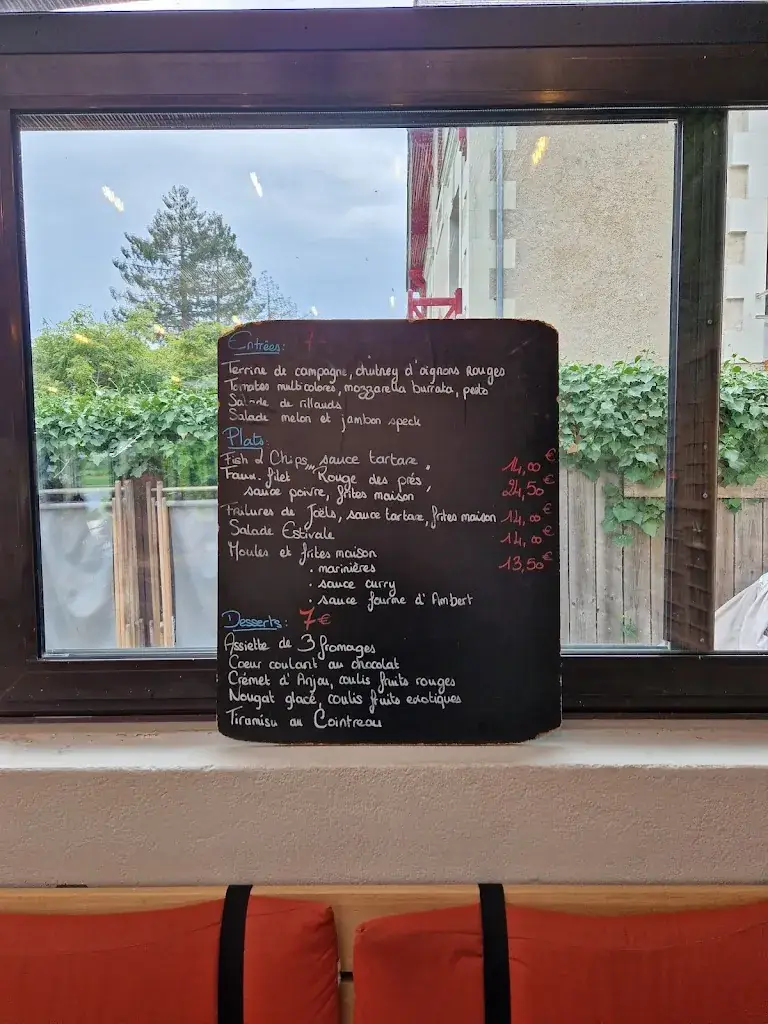 Entrées: 7
Terrine de campagne, chutney d'oignons Rouges
Tomates multicolores, mozzarella burrata, pesto
Salade de rillauds
Salade melon et jambon speck
Plats:
Fish & Chips, sauce tartare 14,00 €
Faux filet "Rouge des prés"
sauce poivre, frites maison 24,50 €
Fritures de Joëls, sauce tartare, frites maison 14,00 €
Salade Estivale 14,00 €
Moules et frites maison 13,50 €
. marinières
. sauce curry
. sauce fourme d'Ambert
Desserts: 7€
Assiette de 3 fromages
Coeur coulant au chocolat
Crémet d'Anjou, coulis fruits rouges
Nougat glacé, coulis fruits exotiques
Tiramisu au Cointreau